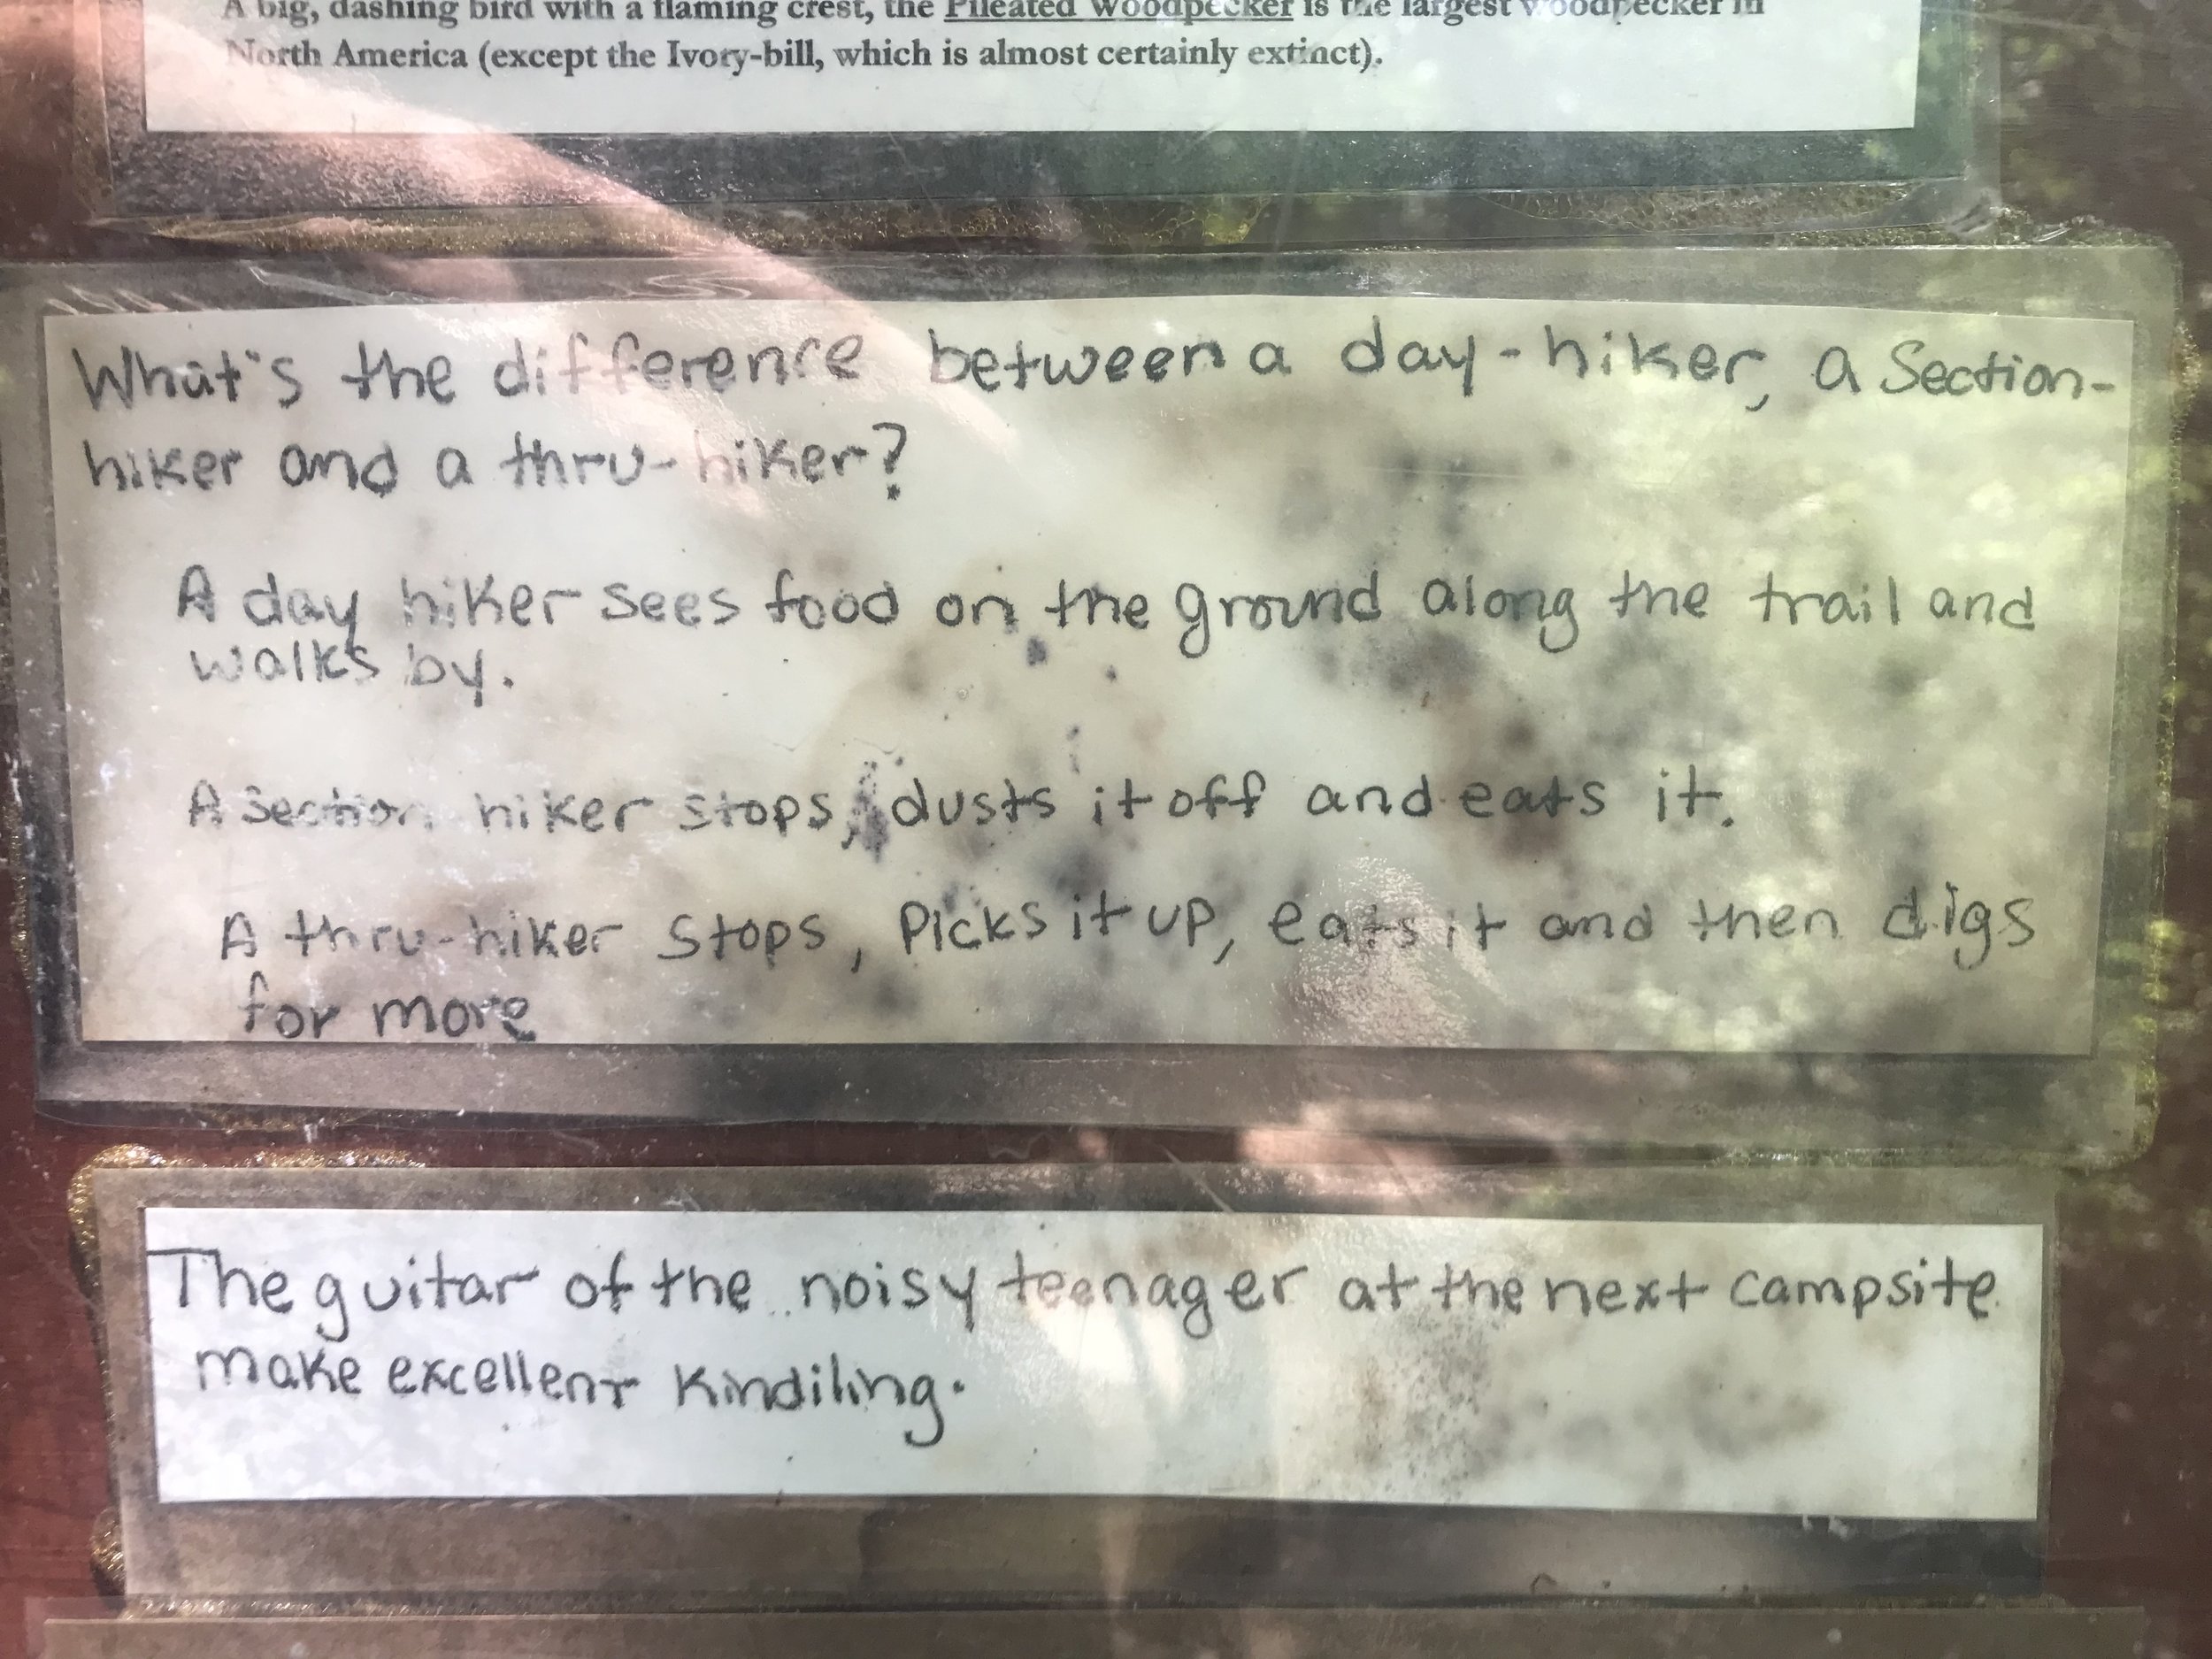 A big, dashing bird with a flaming crest, the Pileated Woodpecker is the largest woodpecker in
North America (except the Ivory-bill, which is almost certainly extinct).
What's the difference between a day-hiker, a Section-
hiker and a thru-hiker?
A day hiker sees food on the ground along the trail and
walks by.
A Section hiker stops, dusts it off and eats it.
A thru-hiker stops, Picks it up, eats it and then digs
for more
The guitar of the noisy teenager at the next campsite
make excellent Kindiling.